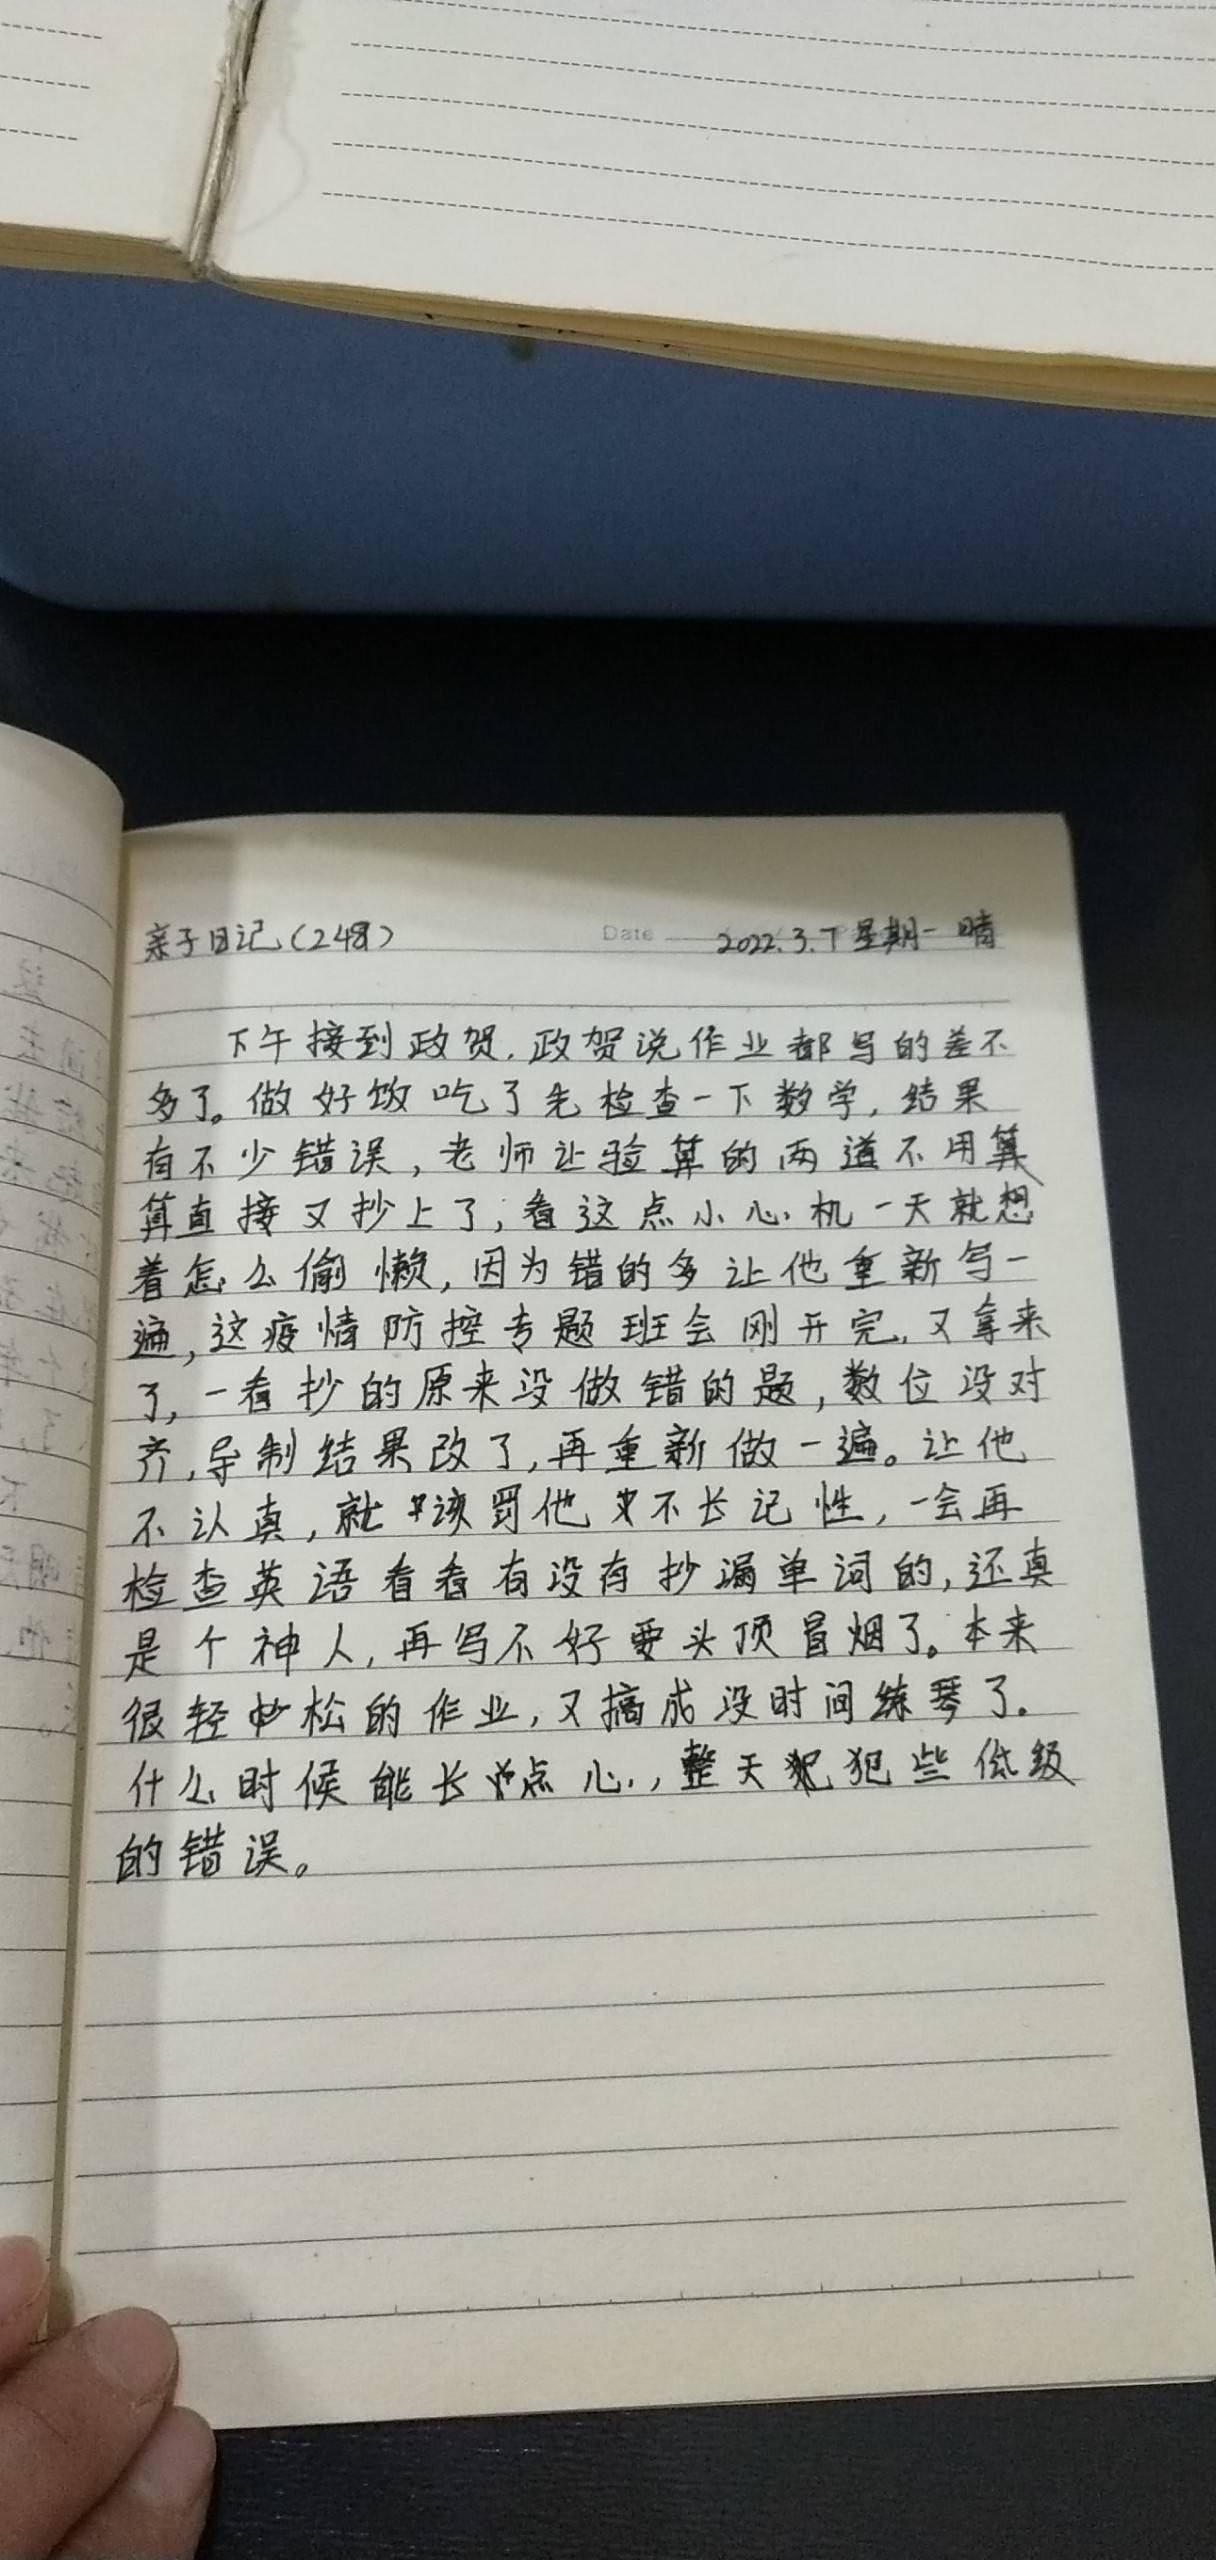 亲子日记(248)
Date 2022.3.7 星期一 晴
下午接到政贺,政贺说作业都写的差不
多了。做好饭吃了先检查一下数学,结果
有不少错误,老师让验算的两道不用算
算直接又抄上了,看这点小心机一天就想
着怎么偷懒,因为错的多让他重新写一
遍,这疫情防控专题班会刚开完,又拿来
了,一看抄的原来没做错的题,数位没对
齐,导制结果改了,再重新做一遍。让他
不认真,就该罚他不长记性,一会再
检查英语看看有没有抄漏单词的,还真
是个神人,再写不好要头顶冒烟了。本来
很轻松的作业,又搞成没时间练琴了。
什么时候能长点心,整天犯些低级
的错误。